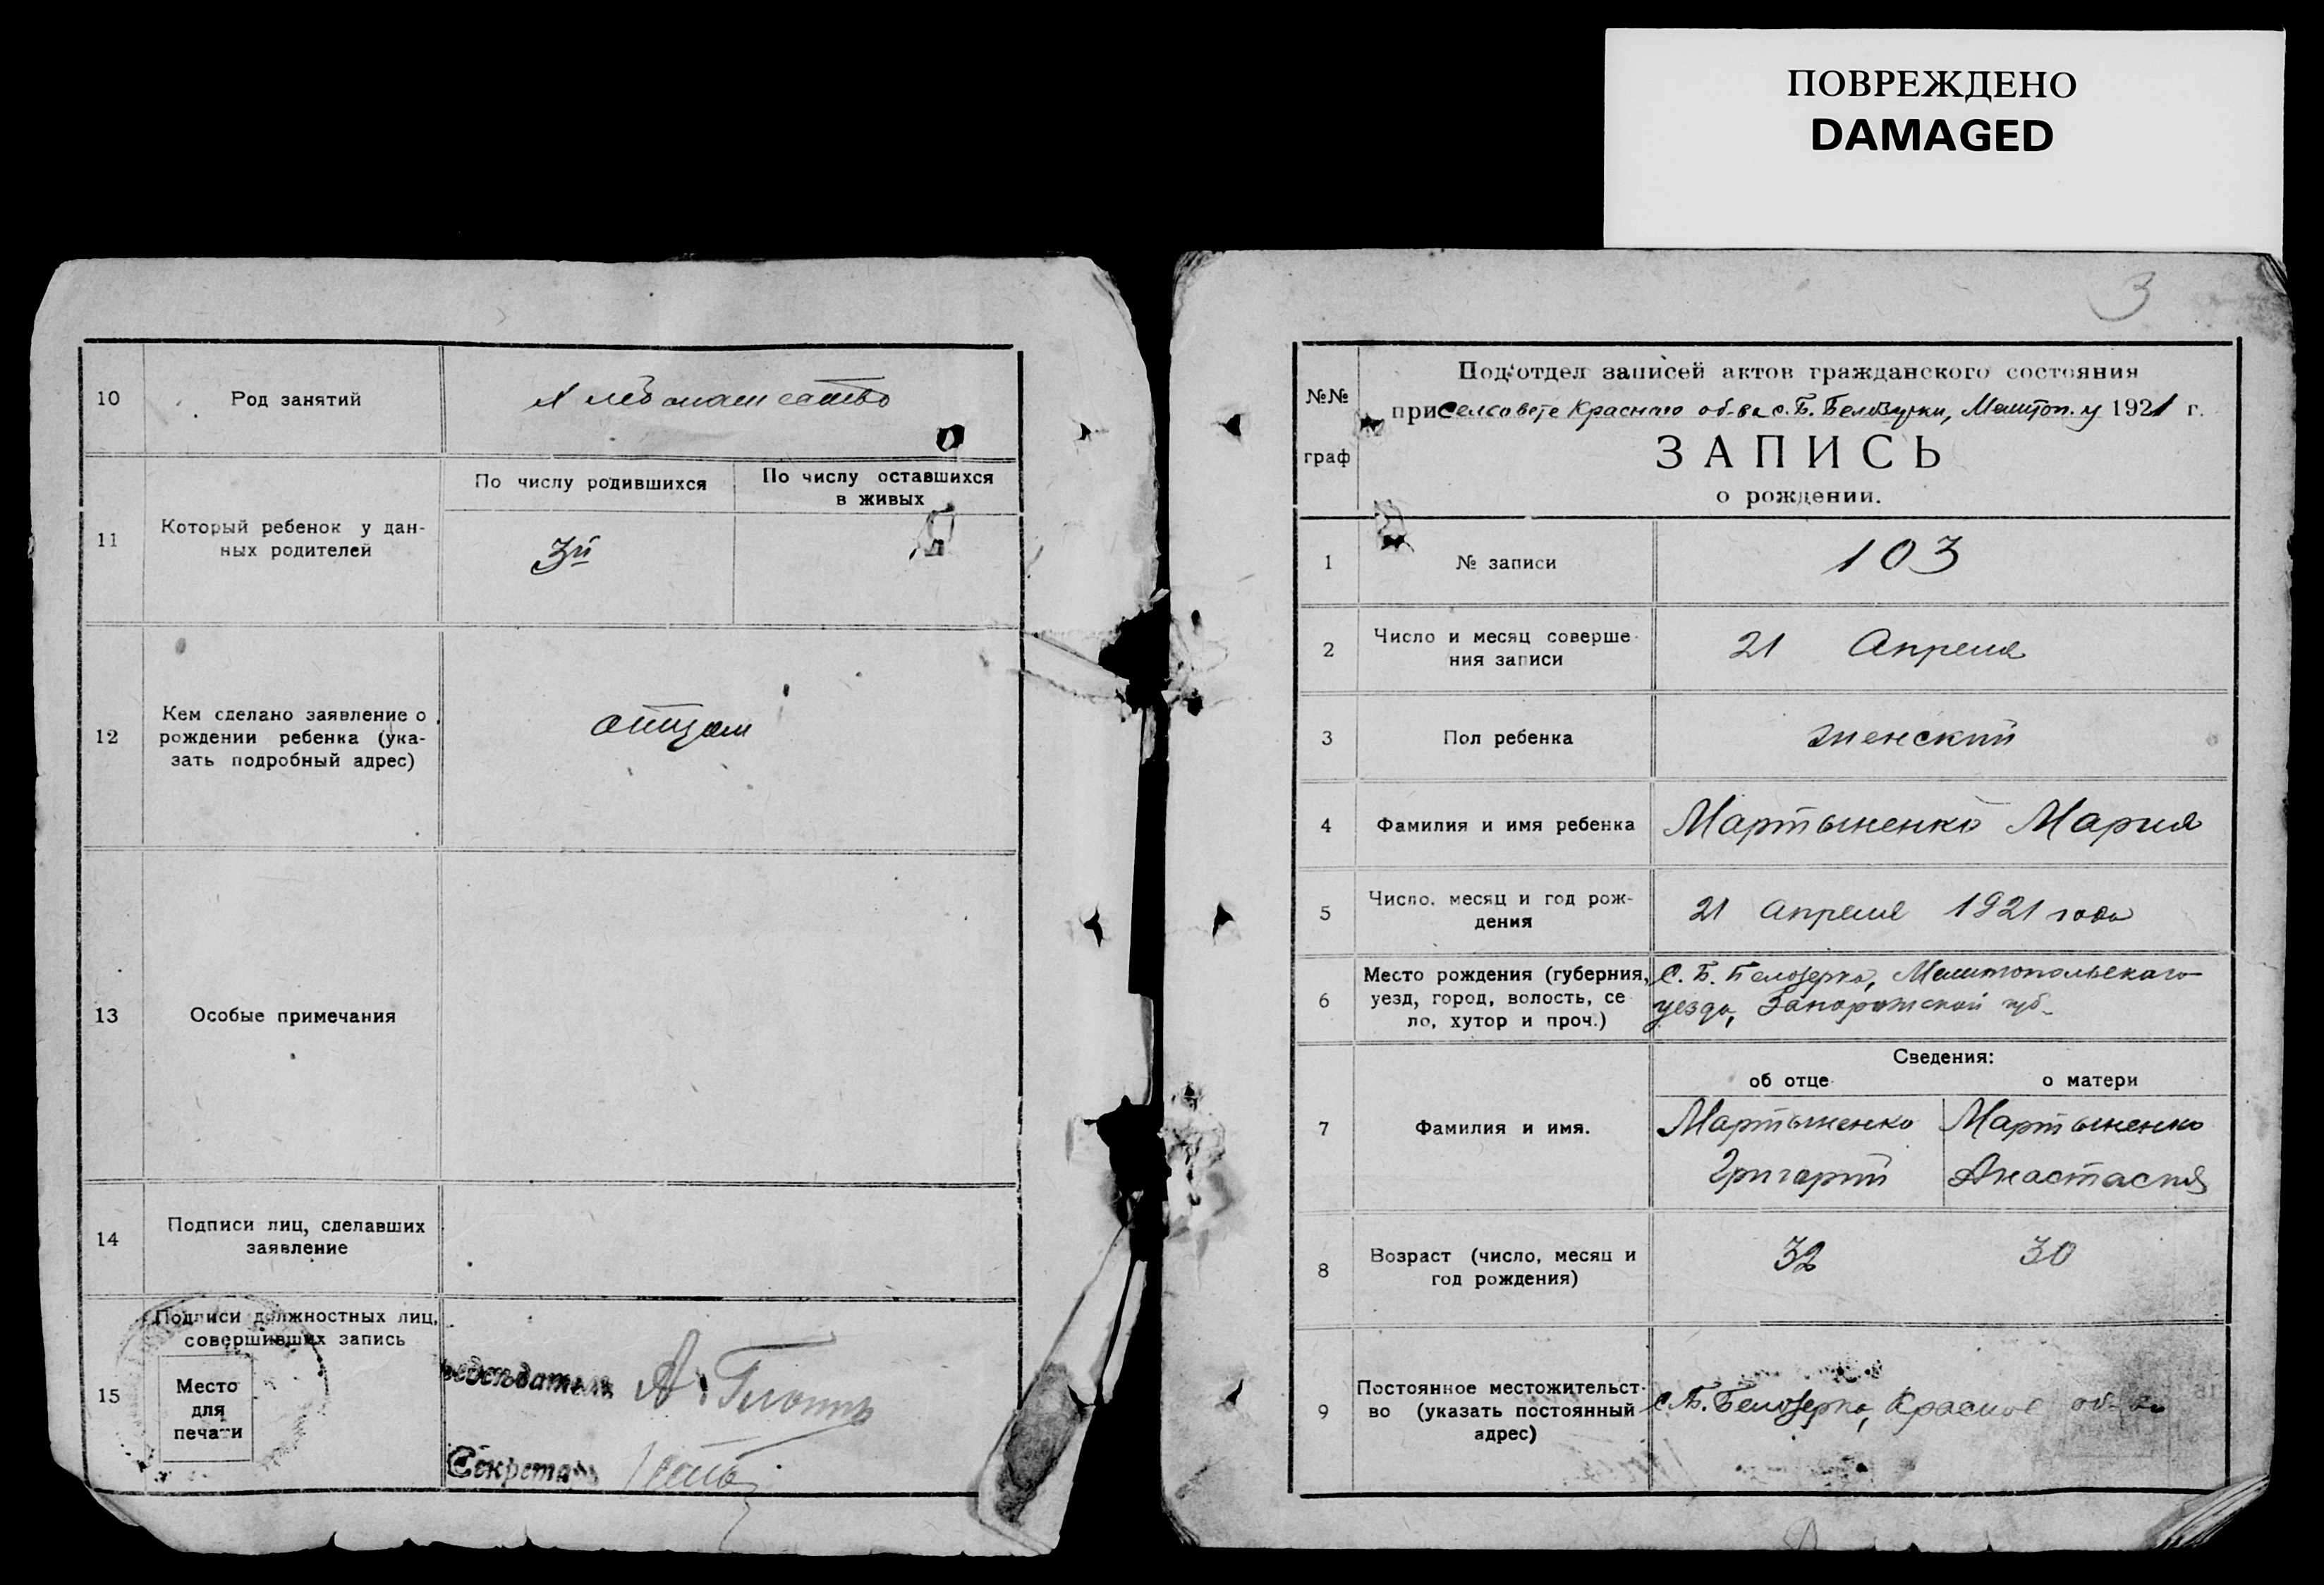 ПОВРЕЖДЕНО
DAMAGED
10
Род занятий
Хлебопашество
11
Который ребенок у дан-
ных родителей
По числу родившихся
По числу оставшихся
в живых
3й
12
Кем сделано заявление о
рождении ребенка (ука-
зать подробный адрес)
отцом
13
Особые примечания
14
Подписи лиц, сделавших
заявление
15
Подписи должностных лиц,
совершивших запись
Место
для
печати
А.
Секретарь
3
№№
граф
Под'отдел записей актов гражданского состояния
при селсовете Краснаго об-ва с. Б. Белозерки, Мелитоп. у 1921 г.
ЗАПИСЬ
о рождении.
1
№ записи
103
2
Число и месяц соверше-
ния записи
21 Апреля
3
Пол ребенка
женский
4
Фамилия и имя ребенка
Мартыненко Мария
5
Число. месяц и год рож-
дения
21 Апреля 1921 года
6
Место рождения (губерния,
уезд, город, волость, се
ло, хутор и проч.)
С. Б. Белозерка, Мелитопольскаго
уезда, Запорожской губ.
Сведения:
об отце
о матери
7
Фамилия и имя.
Мартыненко
Григорий
Мартыненко
Анастасия
8
Возраст (число, месяц и
год рождения)
32
30
9
Постоянное местожительст-
во (указать постоянный
адрес)
с. Б. Белозерка, Красное об-во